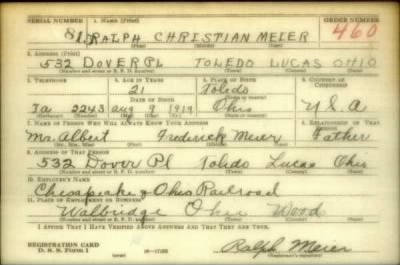 SERIAL NUMBER 1. NAME (Print) ORDER NUMBER
81 RALPH CHRISTIAN MEIER 460
(First) (Middle) (Last)
2. ADDRESS (Print)
532 DOVER PL TOLEDO LUCAS OHIO
(Number and street or R. F. D. number) (Town) (County) (State)
3. TELEPHONE 4. AGE IN YEARS 5. PLACE OF BIRTH 6. COUNTRY OF CITIZENSHIP
21 Toledo
DATE OF BIRTH
Ja 2243 Aug 9 1919 Ohio U.S.A
7. NAME OF PERSON WHO WILL ALWAYS KNOW YOUR ADDRESS 8. RELATIONSHIP OF THAT PERSON
Mr. Albert Frederick Meier Father
(Mr., Mrs., Miss) (First) (Middle) (Last)
9. ADDRESS OF THAT PERSON
532 Dover Pl Toledo Lucas Ohio
(Number and street or R. F. D. number) (Town) (County) (State)
10. EMPLOYER'S NAME
Chesapeake & Ohio Railroad
11. PLACE OF EMPLOYMENT OR BUSINESS
Walbridge Ohio Wood
(Number and street or R. F. D. number) (Town) (County) (State)
I AFFIRM THAT I HAVE VERIFIED ABOVE ANSWERS AND THAT THEY ARE TRUE.
REGISTRATION CARD
D. S. S. Form 1
Ralph Meier